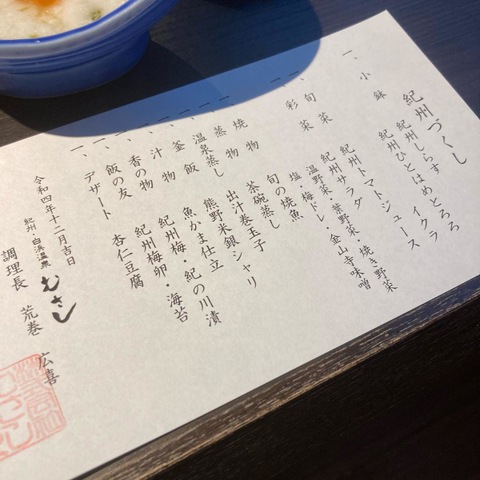 紀州づくし
一、小鉢 紀州ひとはめとろろ
紀州しらす イクラ
紀州トマトジュース
一、旬菜 紀州サラダ
一、彩菜 温野菜・熊野菜・焼き野菜
塩・梅ドレ・金山寺味噌
一、焼物 旬の焼魚
一、蒸物 茶碗蒸し
一、温泉蒸し 出汁巻玉子
一、釜飯 熊野米銀シャリ
一、汁物 魚かま仕立
一、香の物 紀州梅・紀の川漬
一、飯の友 紀州梅卵・海苔
一、デザート 杏仁豆腐
令和四年十二月吉日
紀州・白浜温泉 むさし
調理長 荒巻 広喜